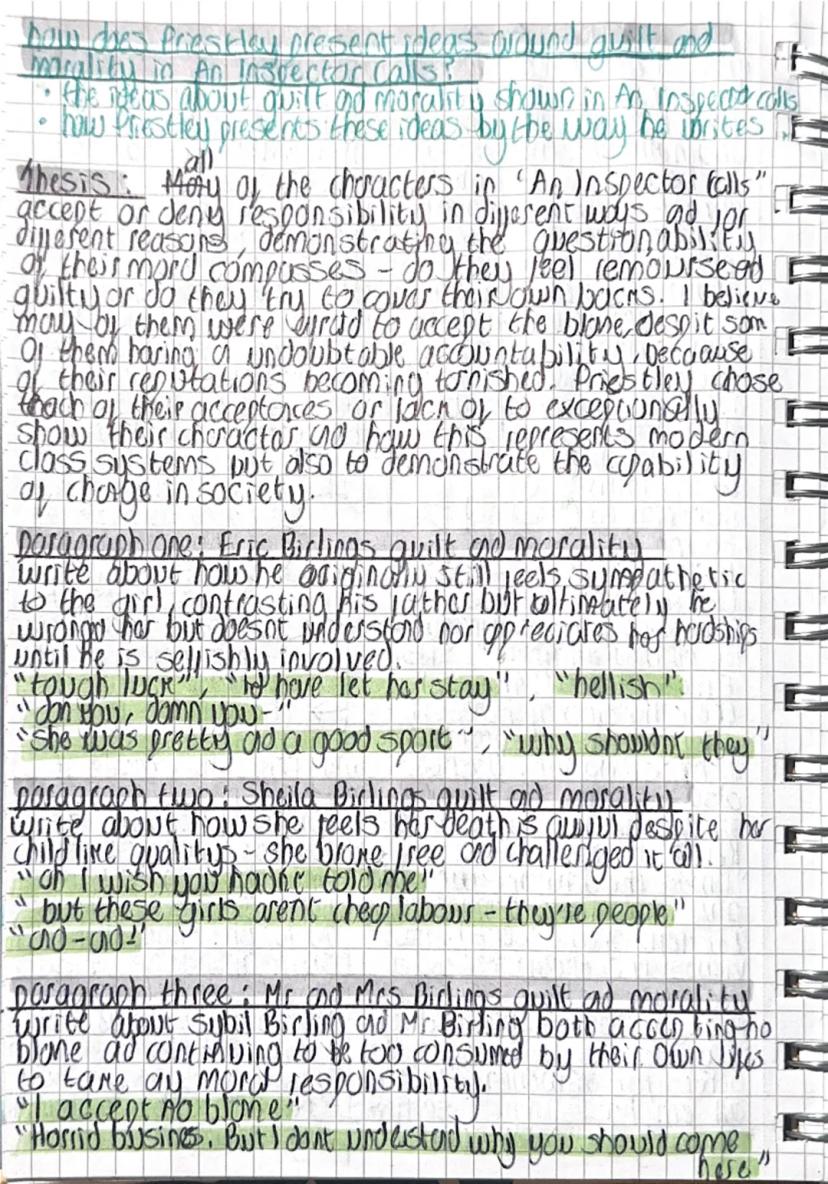 how does Priestley present ideas around guilt and
morality in An Inspector Calls?
• the ideas about guilt ad morality shown in An Inspector calls
• how Priestley presents these ideas by the way he writes.
all
Thesis: Many of the characters in "An Inspector Calls"
accept or deny responsibility in different ways ad for
different reasons, demonstrating the questionability
of their moral compasses - do they feel remourseed
guilty or do they try to cover their own backs. I believe
may of them were afraid to accept the blame, despit som
of them having a undoubtable accountability, because
of their reputations becoming tarnished. Priestley chose
each of their acceptances or lack of to exceptionally
show their character and how this represents modern
class systems but also to demonstrate the capability
of change in society.
paragraph one: Eric Birlings guilt ad morality
write about how he originally still feels sympathetic
to the girl, contrasting his father but ultimately he
wronged her but doesnt understand nor appreciates her hardships
until he is selfishly involved.
"tough luck", "I'd have let her stay", "hellish"
"dan you, damn you-"
"she was pretty ad a good sport", "why shouldnt they"
paragraph two: Sheila Birlings guilt ad morality
write about how she feels her death is awful despite her
childlike qualitys - she broke free and challenged it all.
"oh I wish you hadnt told me"
"but these girls arent cheap labour - they're people"
"ad-ad-"
paragraph three: Mr and Mrs Birlings guilt ad morality
write about Sybil Birling and Mr Birling both accepting no
blame ad continuing to be too consumed by their own lifes
to take ay moral responsibility.
"I accept no blame"
"Horrid busines. But I dont understand why you should come
here"